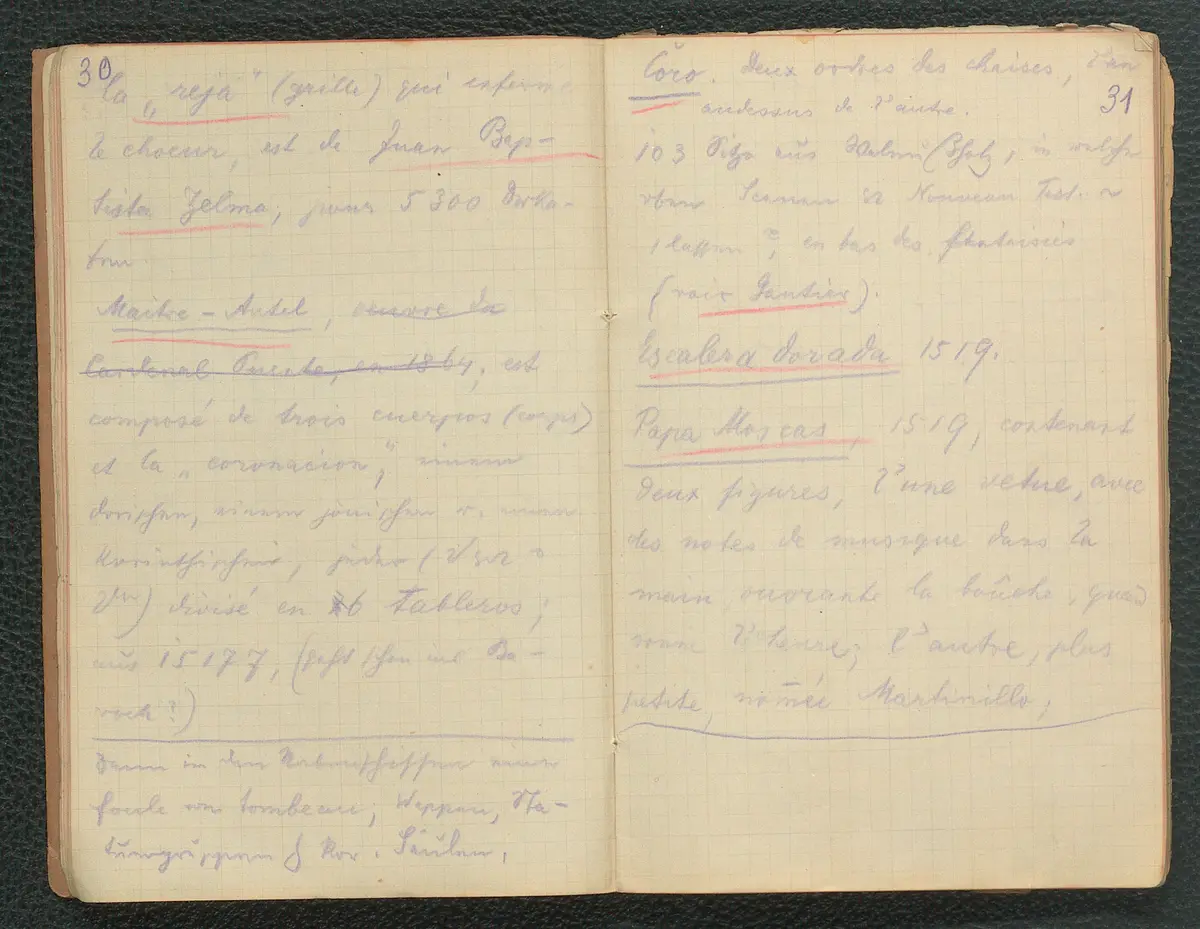 30
la „reja“ (grille) qui enferme
le choeur, est de Juan Bap-
tista Zelma, pour 5300 Duka-
ten.
Maitre-Autel, oeuvre du
Cardenal Puente, en 1864, est
composé de trois cuerpos (corps)
et la „coronacion“, einem
dorischen, einem jonischen u. einen
Korinthischen, jeder
divisé en 6 Tableros;
aus 1577, (geht schon ins Ba-
rock?)
Dann in den Nebenschiffen eine
foule von tombeau, Wappen, Sta-
tuengruppen Kor. Säulen,
31
Coro. Deux ordres des chaises, l'un
audessus de l'autre.
103 Sitze aus Walnußholz, in welche
oben Scenen Nouveau Test.
en bas des fantaisies
(voir Gautier).
Escalera dorada 1519.
Papa Moscas, 1519, contenant
deux figures, l'une vetue, avec
des notes de musique dans la
main, ouvrante la bouche, quand
sonne l'heure; l'autre, plus
petite, nomée Martinillo;